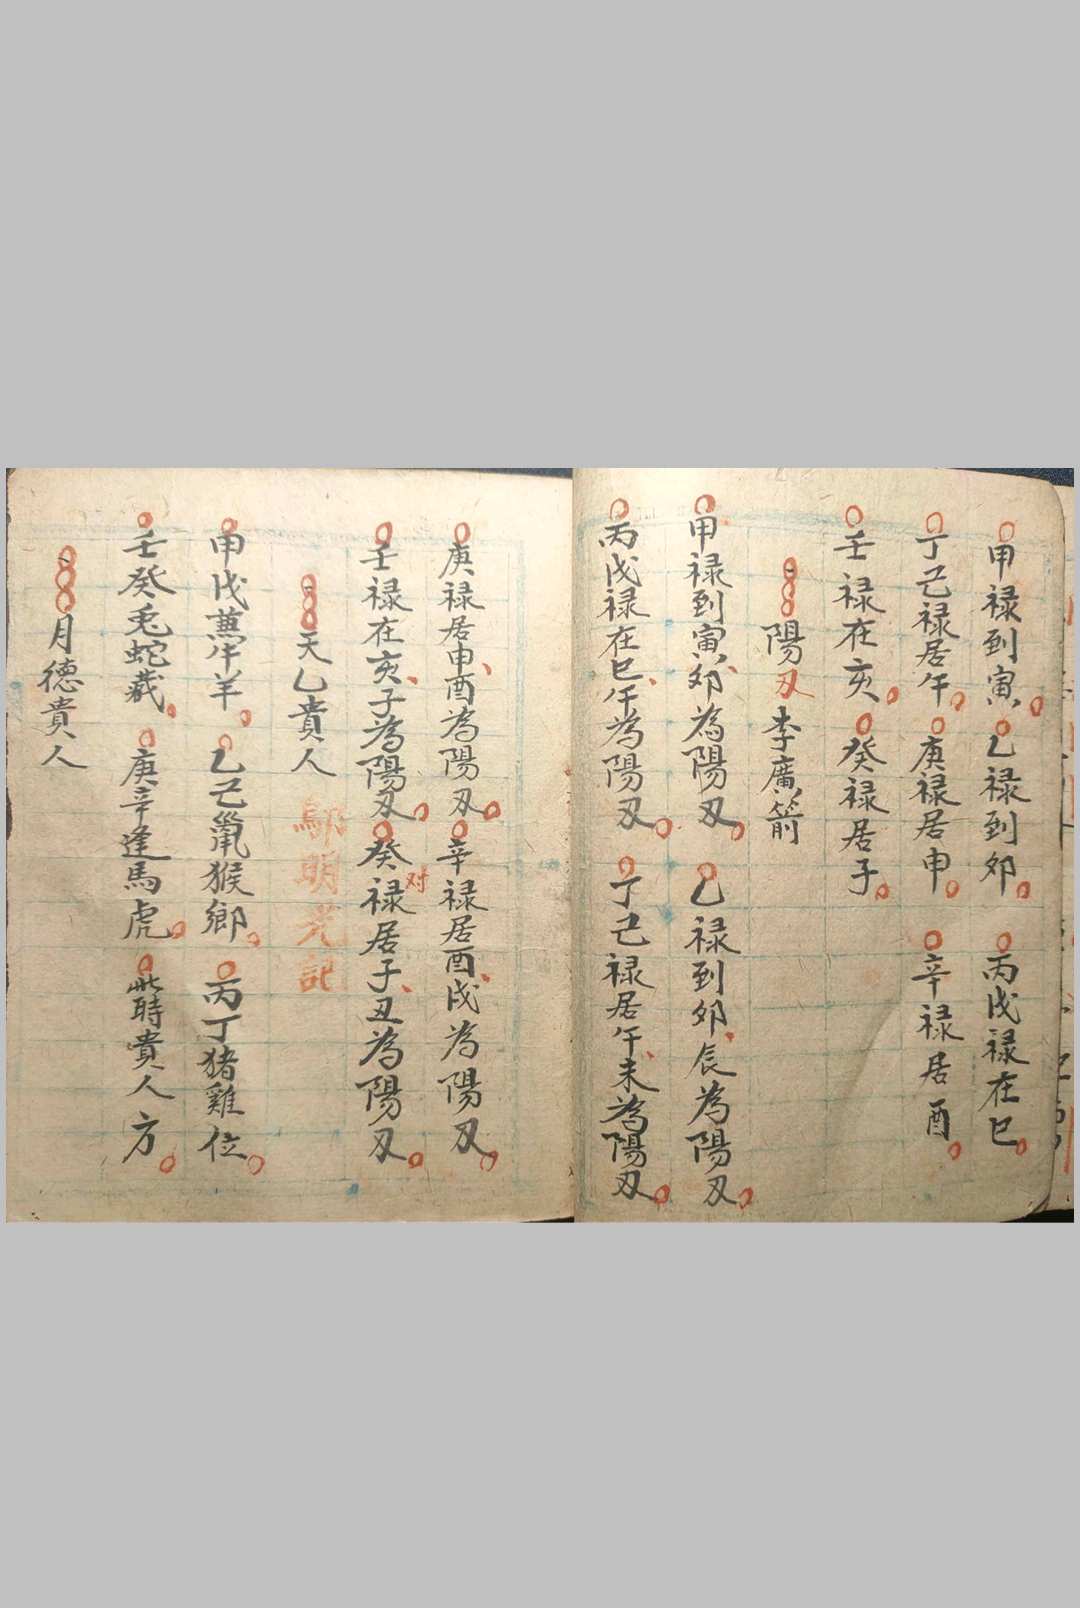 甲禄到寅 乙禄到卯 丙戊禄在巳
丁己禄居午 庚禄居申 辛禄居酉
壬禄在亥 癸禄居子
陽刃 李廣箭
甲禄到寅卯為陽刃 乙禄到卯辰為陽刃
丙戊禄在巳午為陽刃 丁己禄居午未為陽刃
庚禄居申酉為陽刃 辛禄居酉戌為陽刃
壬禄在亥子為陽刃 癸禄居子丑為陽刃
对
天乙貴人
明 記
甲戊兼牛羊 乙己鼠猴鄉 丙丁猪雞位
壬癸兎蛇藏 庚辛逢馬虎 此時貴人方
月德貴人